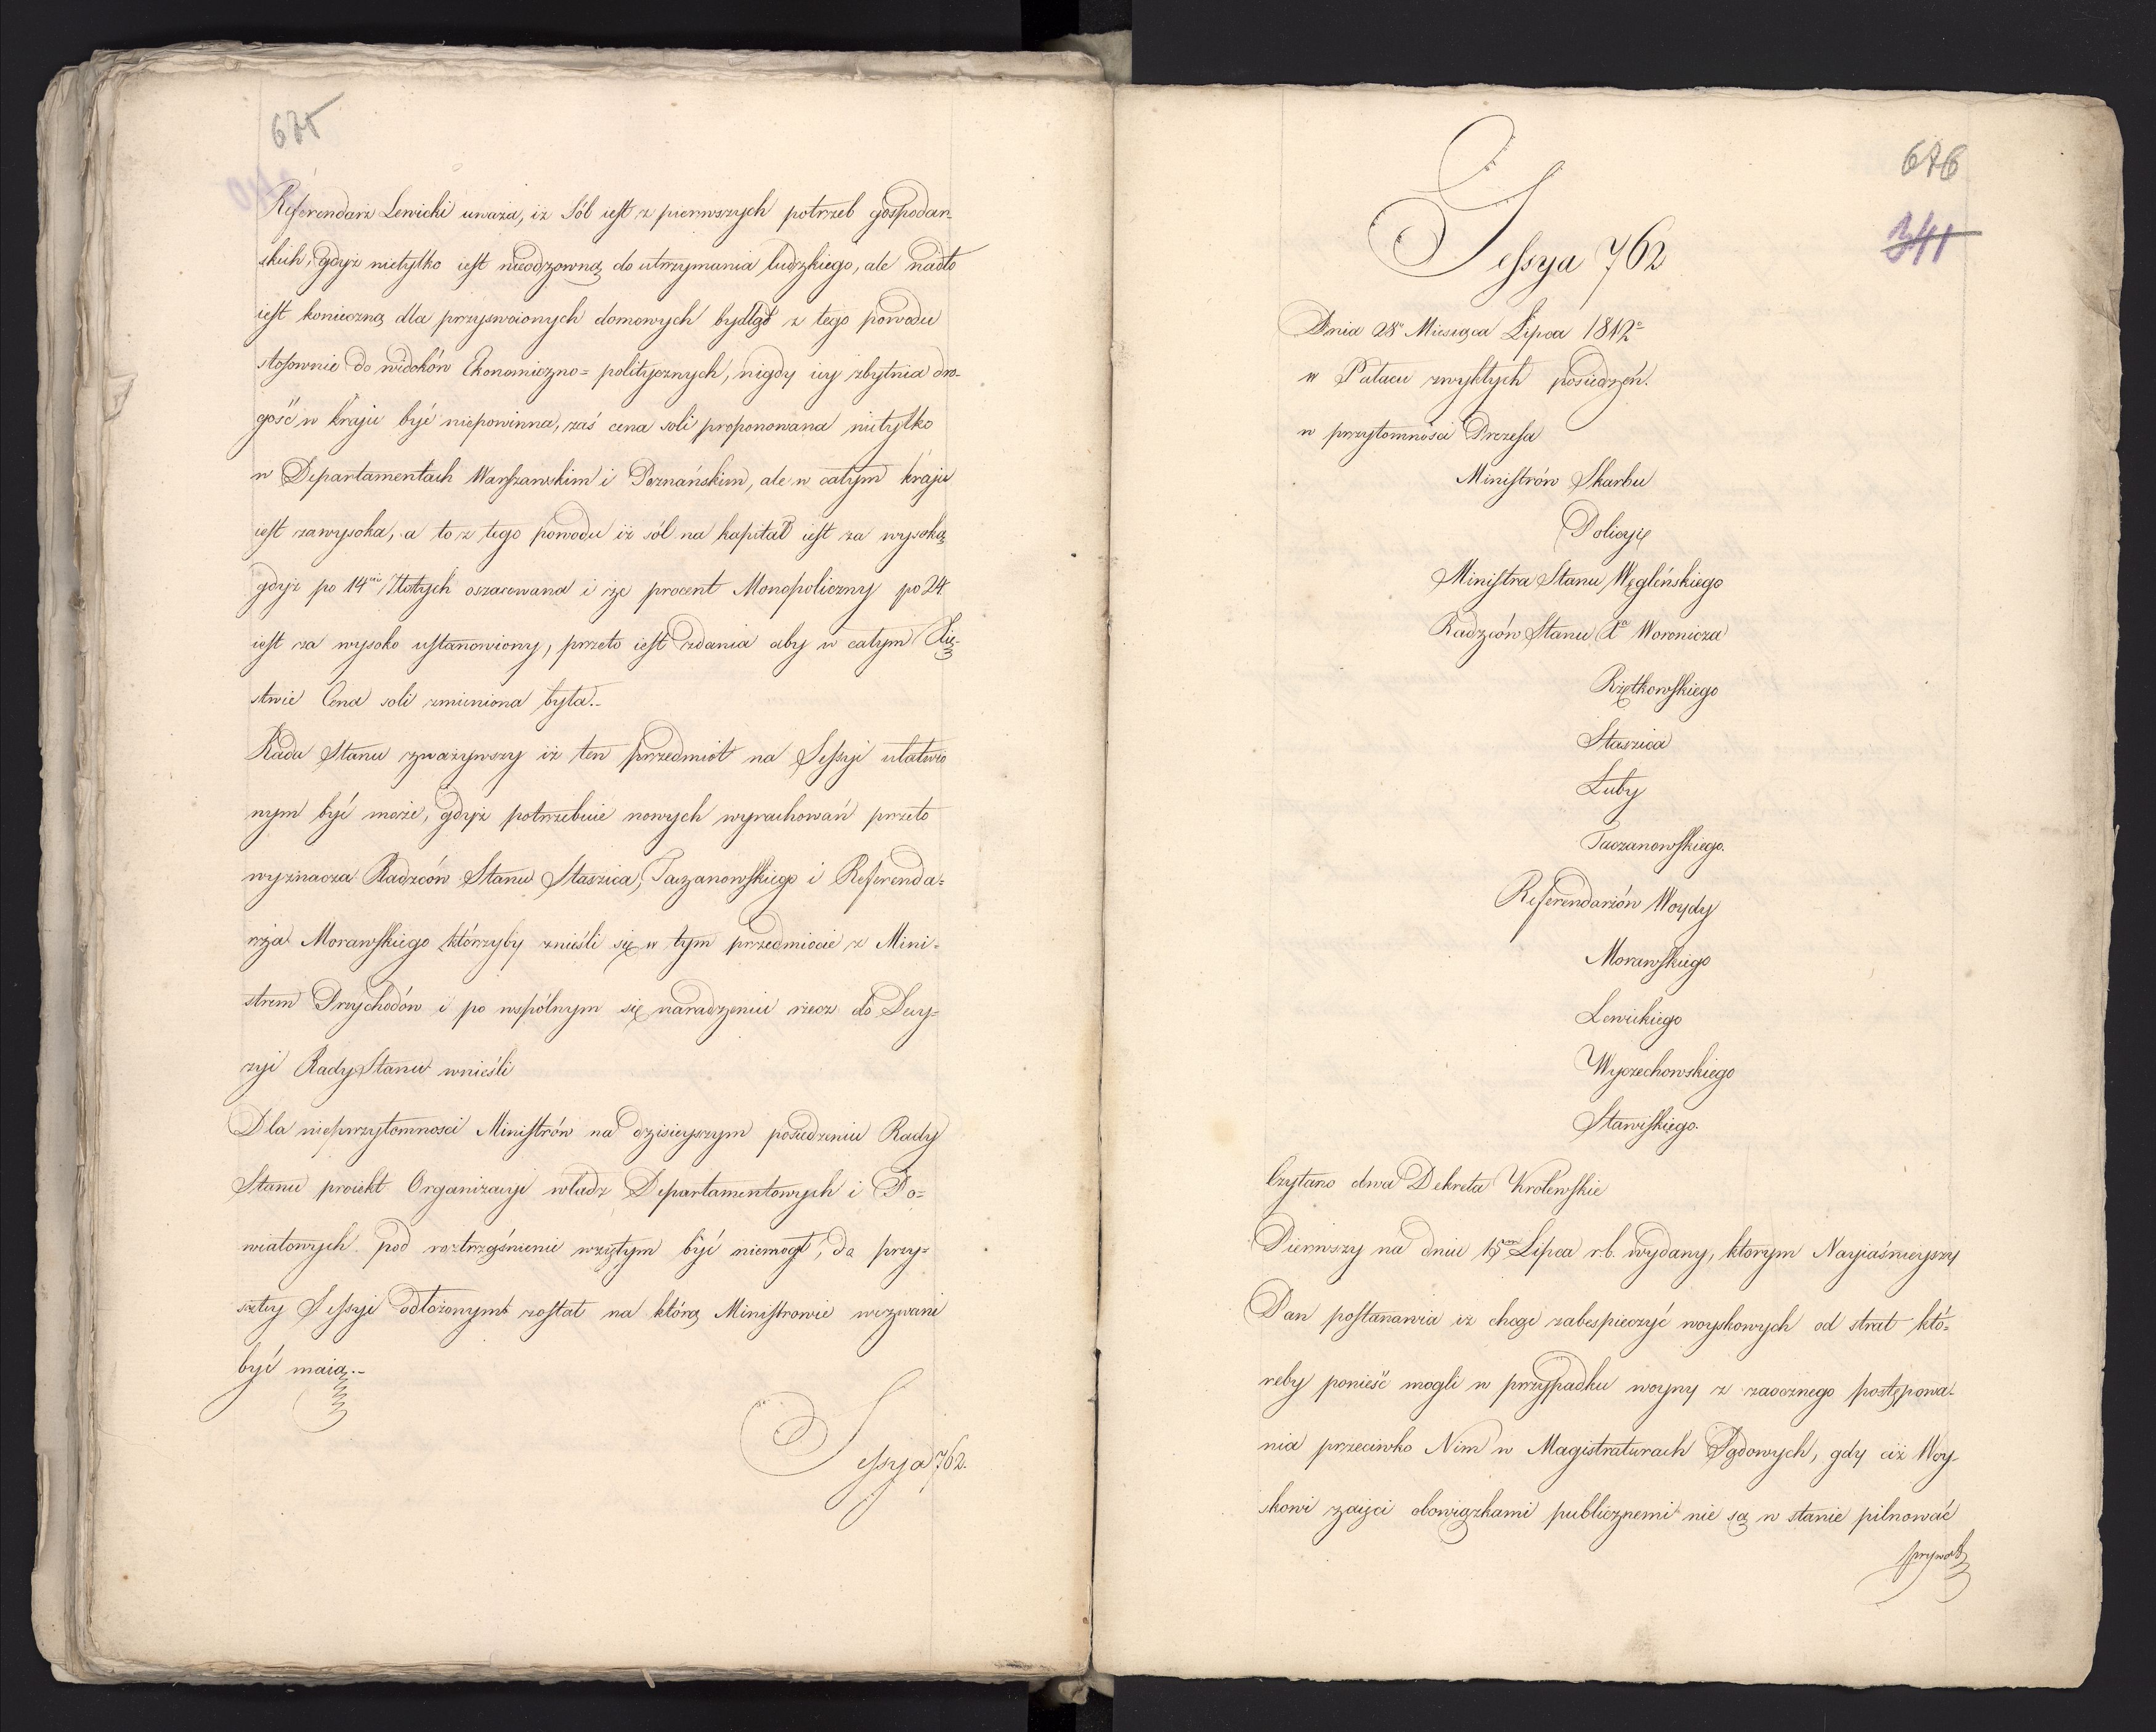 675
Referendarz Lewicki uważa, iż Sól iest z pierwszych potrzeb gospodar-
skich, gdyż nietylko iest nieodzowną do utrzymania ludzkiego, ale nadto
iest konieczną dla przyswoionych domowych bydląt z tego powodu
stosownie do widoków Ekonomiczno=politycznych, nigdy iey zbytnia dro-
gość w kraju być niepowinna, zaś cena soli proponowana nietylko
w Departamentach Warszawskim i Poznańskim, ale w całym kraju
iest zawysoka, a to z tego powodu iż sól na kapitał iest za wysoką
gdyż po 14cie Złotych oszacowana i że procent Monopoliczny po 24
iest za wysoko ustanowiony, przeto iest zdania aby w całym Xię-
stwie Cena soli zmieniona była.-
Rada Stanu zważywszy iż ten przedmiot na Sessyi ułatwio
nym być może, gdyż potrzebuie nowych wyrachowań przeto
wyznacza Radzców Stanu Staszica, Taczanowskiego i Referenda=
rza Morawskiego którzyby znieśli się w tym przedmiocie z Mini-
strem Przychodów i po wspólnym się naradzeniu rzecz do Decy=
zyi Rady Stanu wnieśli
Dla nieprzytomnosci Ministrów na dzisieyszym posiedzeniu Rady
Stanu proiekt Organizacyi władz Departamentowych i Po=
wiatowych pod roztrząśnienie wziętym być niemogł, do przy=
szłey Sessyi odłożonym został na którą Ministrowie wezwani
być maią.-
Sessya 762.
676
341
Sessya 762
Dnia 28o Miesiąca Lipca 1812o
w Pałacu zwykłych posiedzeń.
w przytomności Prezesa
Ministrów Skarbu
Policyi
Ministra Stanu Węgleńskiego
Radzców Stanu Xa Woronicza
Rzętkowskiego
Staszica
Łuby
Taczanowskiego.
Referendarzów Woydy
Morawskiego
Lewickiego
Wyczechowskiego
Stawiskiego.
Czytano dwa Dekreta Krolewskie
Pierwszy na dniu 15 Lipca r.b. wydany, ktorym Nayiaśnieyszy
Pan postanawia iż chcąc zabespieczyć woyskowych od strat któ=
reby ponieść mogli w przypadku woyny z zaocznego postępowa-
nia przeciwko Nim w Magistraturach Sądowych, gdy ciż Woy-
skowi zaięci obowiązkami publicznemi nie są w stanie pilnować